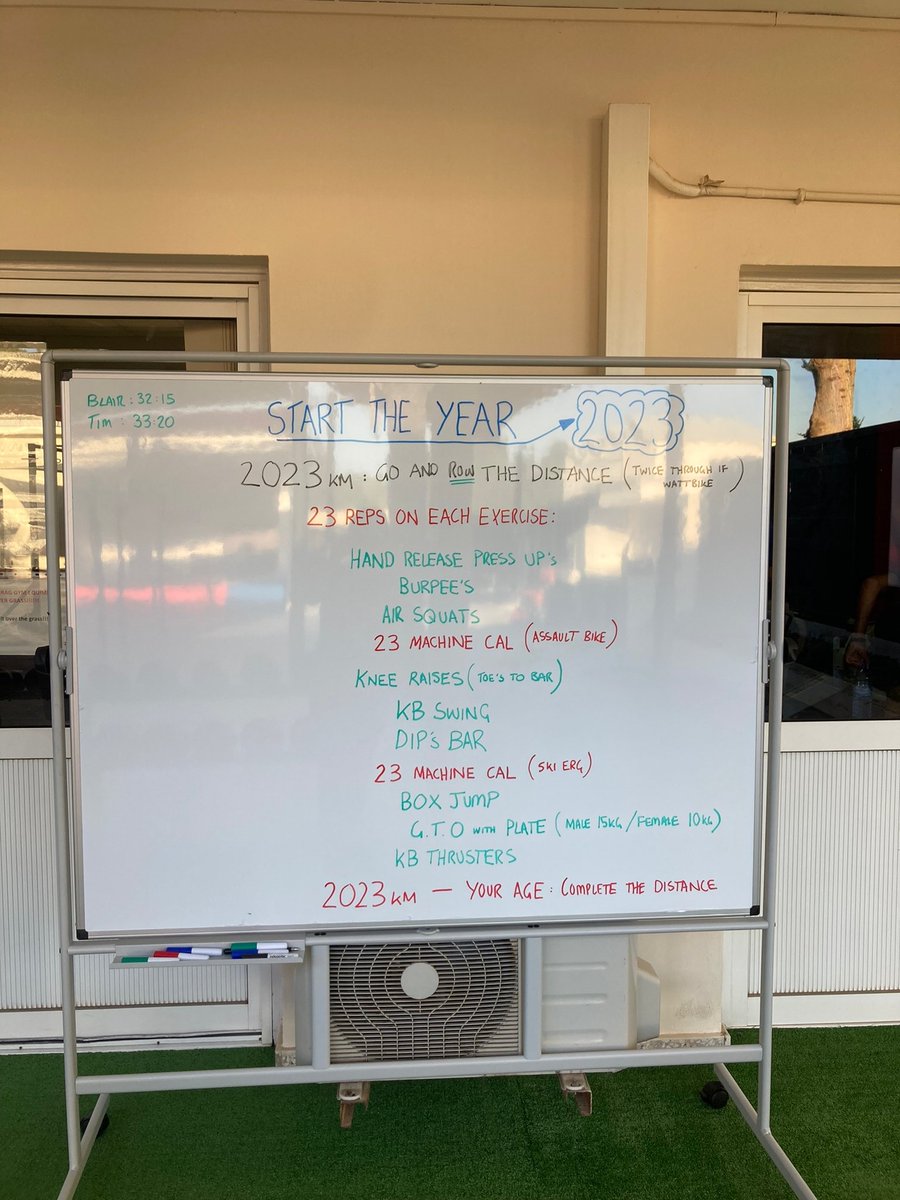 BLAIR : 32:15
TIM : 33:20
START THE YEAR 2023
2023 KM : GO AND ROW THE DISTANCE (TWICE THROUGH IF WATTBIKE)
23 REPS ON EACH EXERCISE:
HAND RELEASE PRESS UP's
BURPEE'S
AIR SQUATS
23 MACHINE CAL (ASSAULT BIKE)
KNEE RAISES (TOE'S TO BAR)
KB SWING
DIP's BAR
23 MACHINE CAL (SKI ERG)
BOX JUMP
G.T.O WITH PLATE (MALE 15KG/FEMALE 10KG)
KB THRUSTERS
2023 KM — YOUR AGE : COMPLETE THE DISTANCE